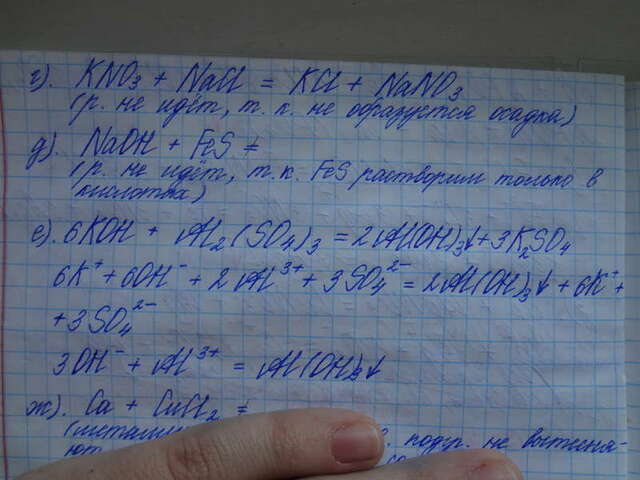 г). KNO₃ + NaCl = KCl + NaNO₃
(р. не идёт, т. к. не образуется осадка)
д). NaOH + FeS ≠
(р. не идёт, т. к. FeS растворим только в
кислотах)
е). 6KOH + Al₂(SO₄)₃ = 2Al(OH)₃↓ + 3K₂SO₄
6K⁺ + 6OH⁻ + 2Al³⁺ + 3SO₄²⁻ = 2Al(OH)₃↓ + 6K⁺ +
+ 3SO₄²⁻
3OH⁻ + Al³⁺ = Al(OH)₃↓
ж). Ca + CuCl₂ =
подгр. не вытесня-
ют